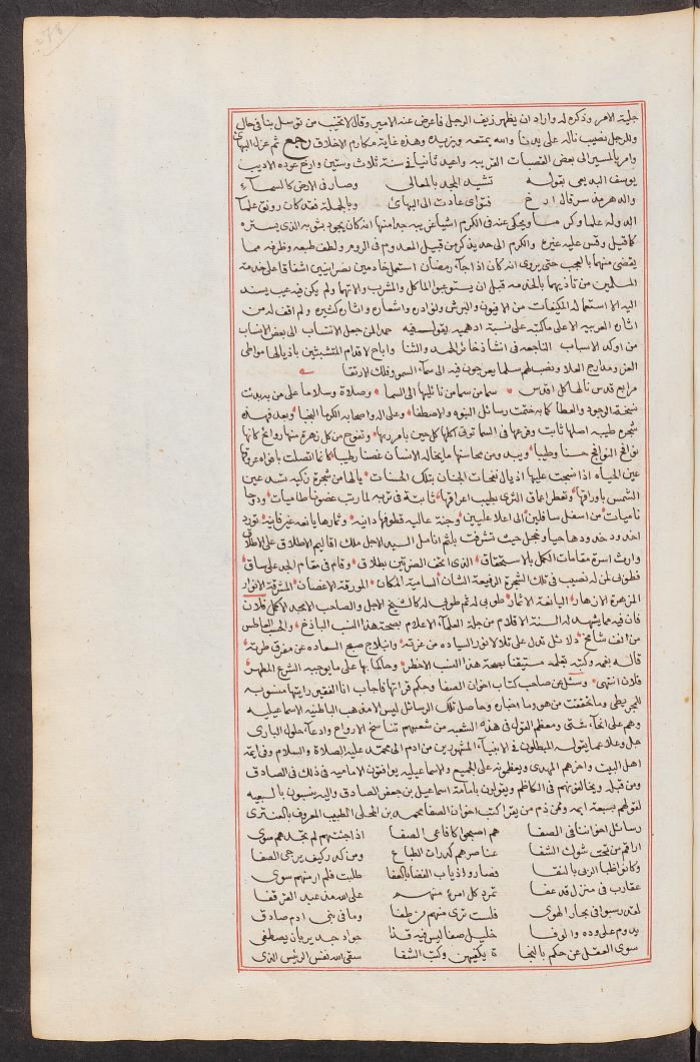 278
جلية الامر وذكره له واراد ان يظهر زيف الرجل فاعرض عنه الامير وقال لا تخيب من توسل بنا في حال
وللرجل نصيب ناله على يدنا والله يمتعه ويزيده وهذه غاية مكارم الاخلاق رجع ثم عزل البهائي
وامر بالمسير الى بعض القصبات القريبه واعيد ثانيا في سنة ثلاث وستين وارخ عوده الاديب
يوسف البديعي بقوله تشيد المجد بالمعالي وصار في الارض كالسماء
والدهر مذ سر قال ارخ فتواي عادت الى البهائي وبالجملة فقد كان رونق علما
الدوله علما وكرما ويحكى عنه في الكرم اشيا غريبه جدا منها انه كان يجود بثوبه الذي يستره
كما قيل وقس عليه غيره والكرم الى حد يذكر من قبيل المعدوم في الروم ولطف طبعه وظرفه مما
يقضى منهما بالعجب حتى يروى انه كان اذا جاء رمضان استعمل خادمين نصرانيين اشفاقا على خدمته
المسلمين من تاذيهما بالخدمه قبل ان يستوعبوا الماكل والمشرب والاتهما ولم يكن فيه عيب يسند
اليه الا استعماله للمكيفات من الافيون والبرش ونوادره واشعاره واثاره كثيره ولم اقف له من
اثاره العربيه الا على ما كتبه على نسبة ادهميه بقوله فيه حمدا لمن جعل الانتساب الى بعض الانساب
من اوكد الاسباب الناجعه في انشا ذخائر الحمد والثنا واباح لاقدام المتشبثين باذيالها مواطى
العز ومدارج العلا ونصب لهم سلما يعرجون فيه الى سماء السمو وفلك الارتقا
مرابع قدس نالها كل اقدس سما من سما من نالها الى السما وصلاة وسلاما على من به بدت
نسخة الوجود والعطا كما به ختمت رسائل النبوه والاصطفا وعلى اله واصحابه الكرما النجبا وبعد فهذه
شجره طيبه اصلها ثابت وفرعها في السما توتي اكلها كل حين بامر ربها وتفوح من كل زهرة منها روائح كانها
نوافح النوافح حسنا وطيبا ويبدو من محاسنها ما يخاله الانسان غصنا رطيبا كانما اتصلت بافواه عروقها
عين الحياه اذا سحبت عليها اذيال نفحات الجنان بتلك الحسنات يالها من شجرة زكيه تسد عين
الشمس باوراقها وتعطر اعماق الثرى بطيب اعراقها ثابتة في تربه لما رتب غصونا طاميات ودوحا
ناميات من اسفل سافلين الى اعلا عليين وجنة عاليه قطوفها دانيه وثمارها يانعه غير فانيه تورد
اخدود خدودها حيا وخجل حيث تشرفت بلثم انامل السيد الاجل ملك اقاليم الاطلاق على الاطلاق
وارث اسرة مقامات الكمل بالاستحقاق الذي اتخذ الضرتين بطلاق وقام في مقام الجد على ساق
فطوبى لمن له نصيب في تلك الشجرة الرفيعة الشان السامية المكان المورقة الاغصان المشرقة الانوار
المزهرة الازهار اليانعة الاثمار طوبى له ثم طوبى له كالشيخ الاجل والصاحب الامجد الاكمل فلان
فان فيه مما يشهد له السنة الاقلام من جلة العلماء الاعلام بصحة هذا النسب الباذخ والحسب العاطس
من انف شامخ دلائل تدل على تلالا نور السياده من غرته وانبلاج صبح السعاده عن مفرق طرته
قاله بفمه وكتبه بقلمه مستيقنا بصحة هذا النسب الاخطر وحاكما بها على ما يوجبه الشرع المطهر
فلان انتهى وسئل عن صاحب كتاب اخوان الصفا وحكم قراتها فاجاب انا الفقير رايتها منسوبه
للمجريطي وما تحققت من هو وما اخباره وحاصل تلك الرسائل ليس الا مذهب الباطنيه الاسماعيليه
وهم على انحاء شتى ومعظم القول في هذه الشعبه من شعبهم تناسخ الارواح وادعاء حلول البارى
جل وعلا عما يقوله المبطلون في الانبياء المشهورين من ادم الى محمد عليه الصلاة والسلام وفي ائمة
اهل البيت واخرهم المهدي ويعظمونه على الجميع والاسماعيليه يوافقون الاماميه في ذلك في الصادق
ومن قبله ويخالفونهم في الكاظم ويقولون بامامة اسماعيل بن جعفر الصادق واليه ينسبون بالسبعيه
لقولهم بسبعة ايمه وممن ذم من يقرا كتب اخوان الصفا محمد بن المحلي الطبيب المعروف بالعنتري
رسائل اخواننا في الصفا هم اصبحوا كافاعي الصفا اذا جئتهم لم تجدهم سوى
اراقم من تحت شوك السفا عناصرهم كدرات الطباع ومن كدر كيف يرجى الصفا
وكانوا ظبا الربى بالنقا فصاروا ذياب الفضا بالعفا طلبت فلم ار منهم سوى
عقارب في منزل قد عفا تمرد كل امرئ منهم على الله بعد العز قفا
لقد رسبوا في بحار الهوى فلست ترى منهم من طفا وما في بني ادم صادق
يدوم على وده والوفا خليل صفا ليس فيه قذا جواد جدير بان يصطفى
سوى العقل عن حكم بالنجاة يكفيهن وكتب الشفا سقى الله نفس الرئيس الذي